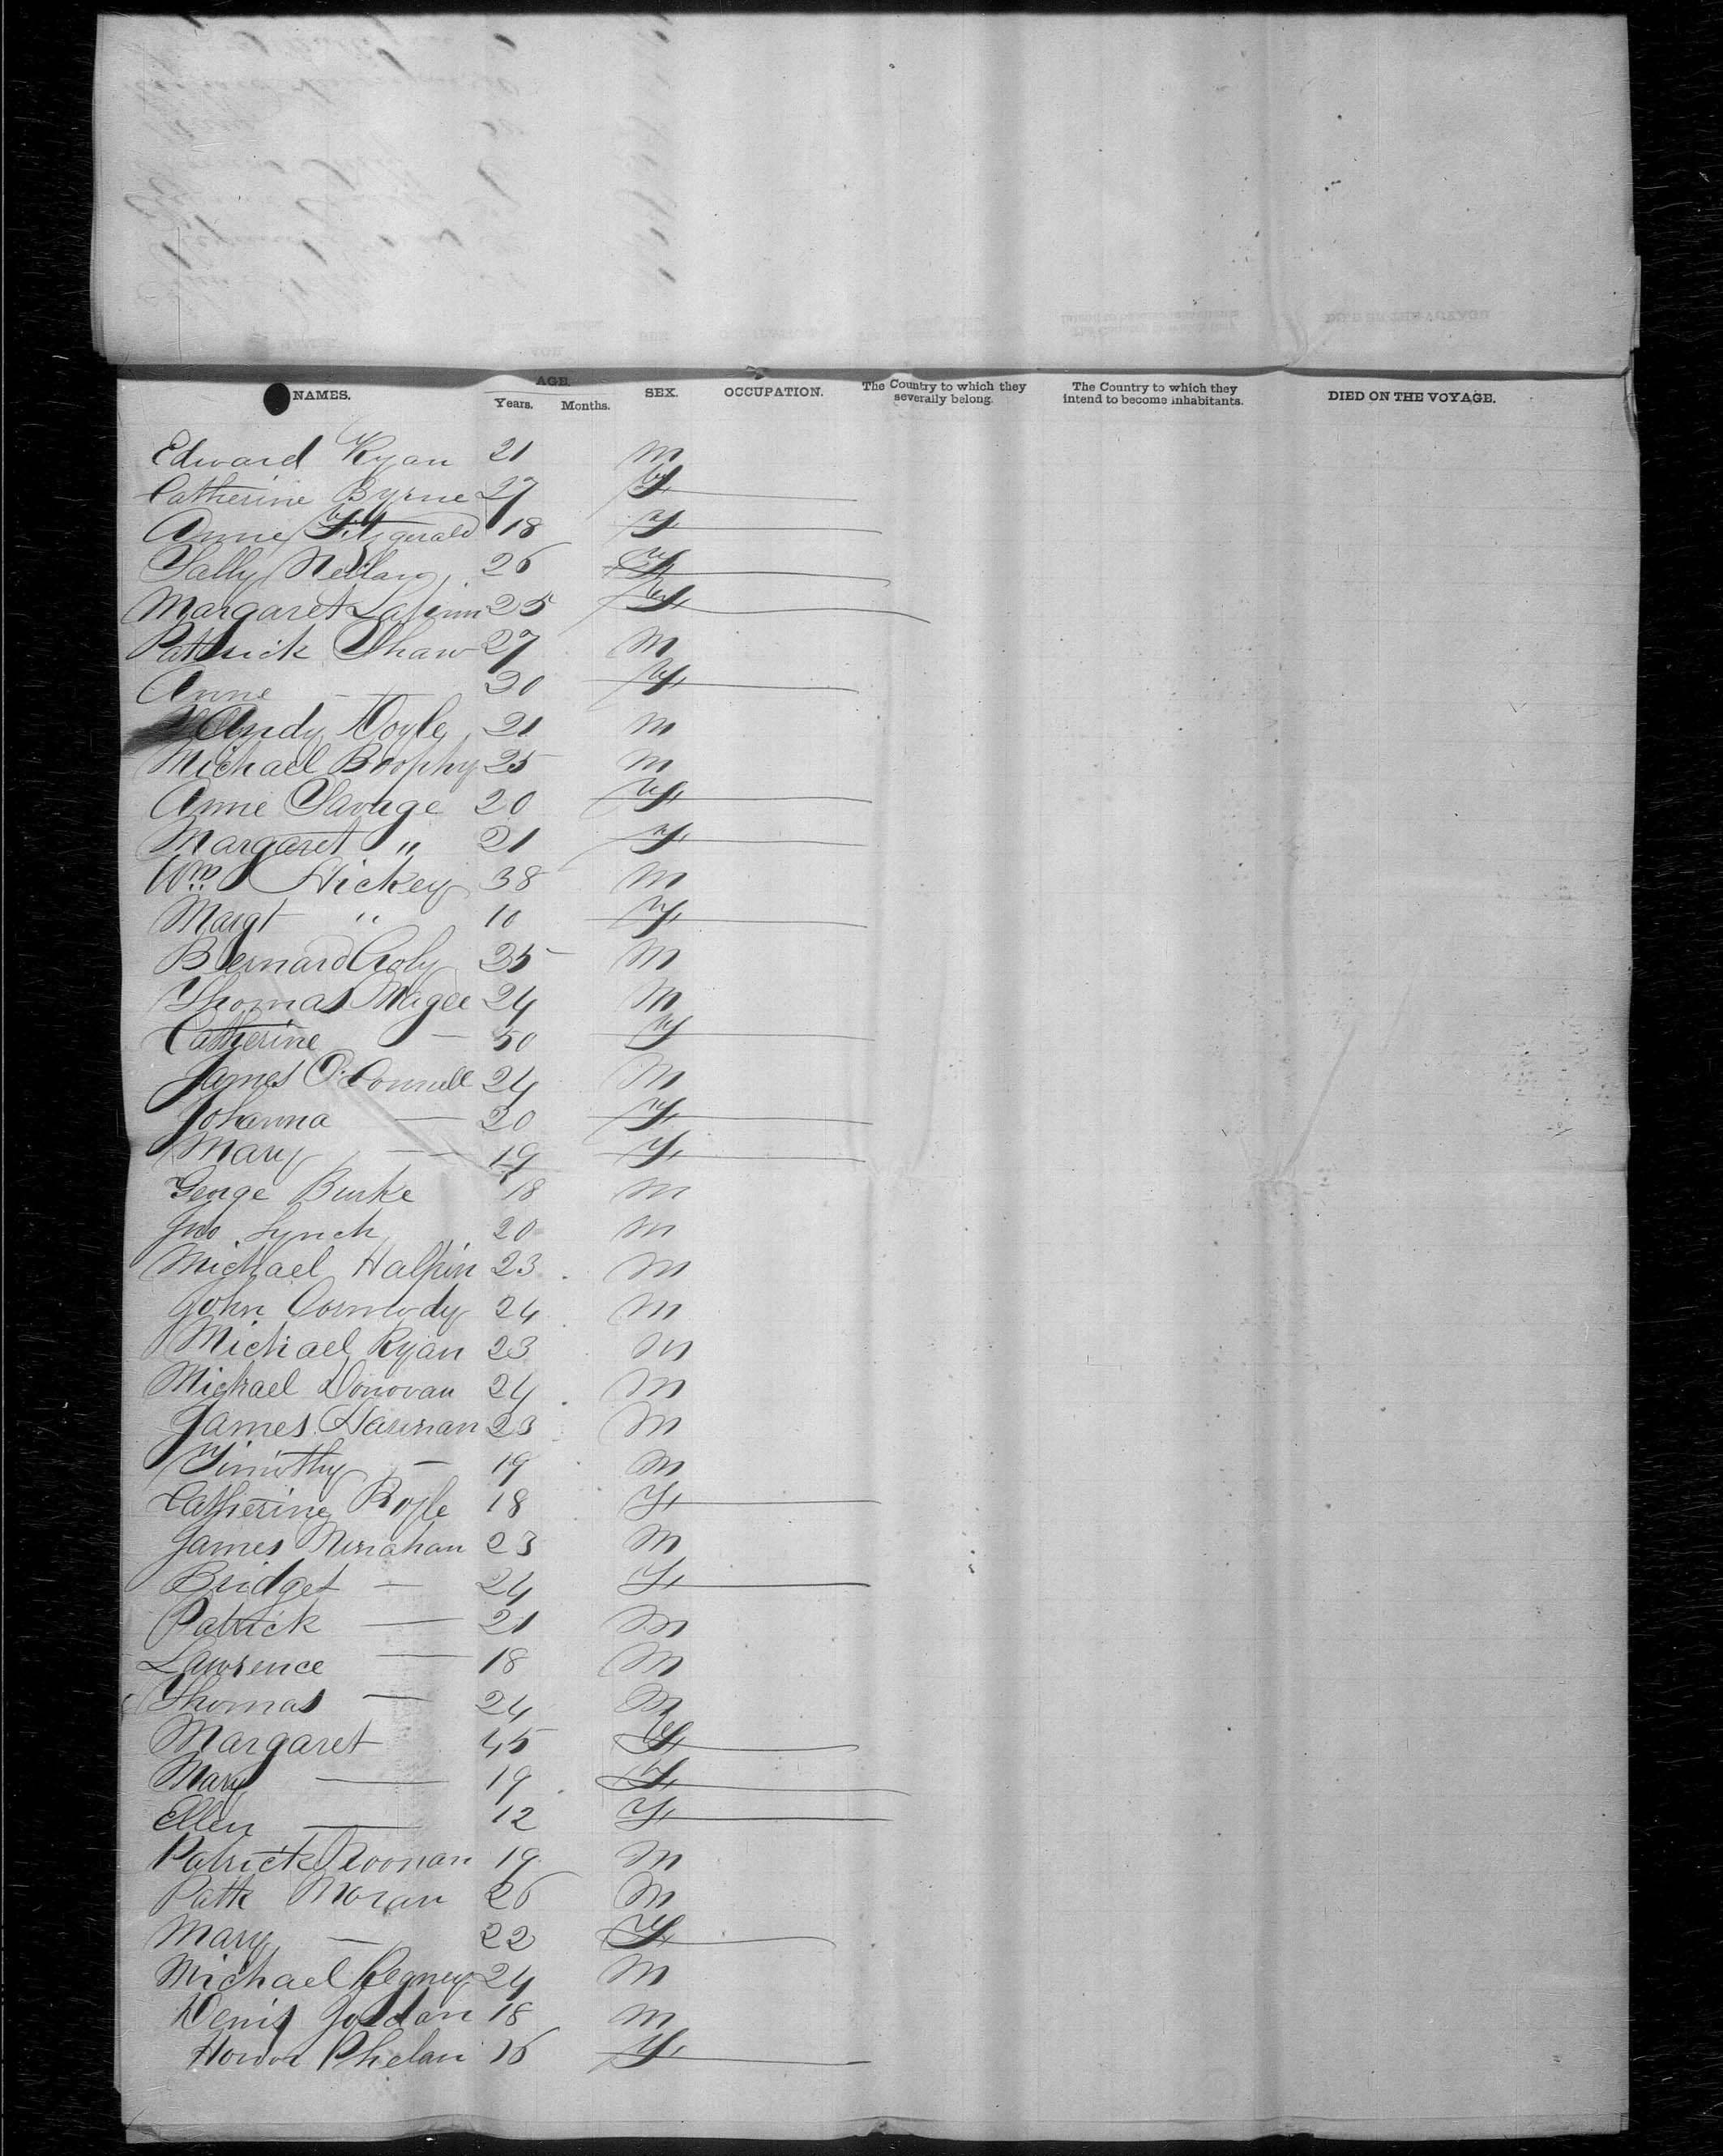 NAMES. AGE. Years. Months. SEX. OCCUPATION. The Country to which they severally belong. The Country to which they intend to become inhabitants. DIED ON THE VOYAGE.
Edward Ryan 21 M
Catherine Byrne 27 F
Anne Fitzgerald 18 F
Sally 26 F
Margaret 25 F
Patrick Shaw 27 M
Anne — 30 F
Andy Doyle 21 M
Michael Brophy 25 M
Anne Savage 20 F
Margaret " 21 F
Wm Hickey 38 M
Margt " 10 F
Bernard 35 M
Thomas Magee 24 M
Catherine — 50 F
James O'Connell 24 M
Johanna — 20 F
Mary — 19 F
George Burke 18 M
Jno Lynch 20 M
Michael Halpin 23 M
John Cormody 24 M
Michael Ryan 23 M
Michael Donovan 24 M
James 23 M
Timothy — 19 M
Catherine Boyle 18 F
James 23 M
Bridget — 24 F
Patrick — 21 M
Lawrence — 18 M
Thomas — 24 M
Margaret 45 F
Mary — 19 F
Ellen — 12 F
Patrick Noonan 19 M
Patk Moran 26 M
Mary — 22 F
Michael Kegney 24 M
Denis Jordan 18 M
Honor Phelan 16 F